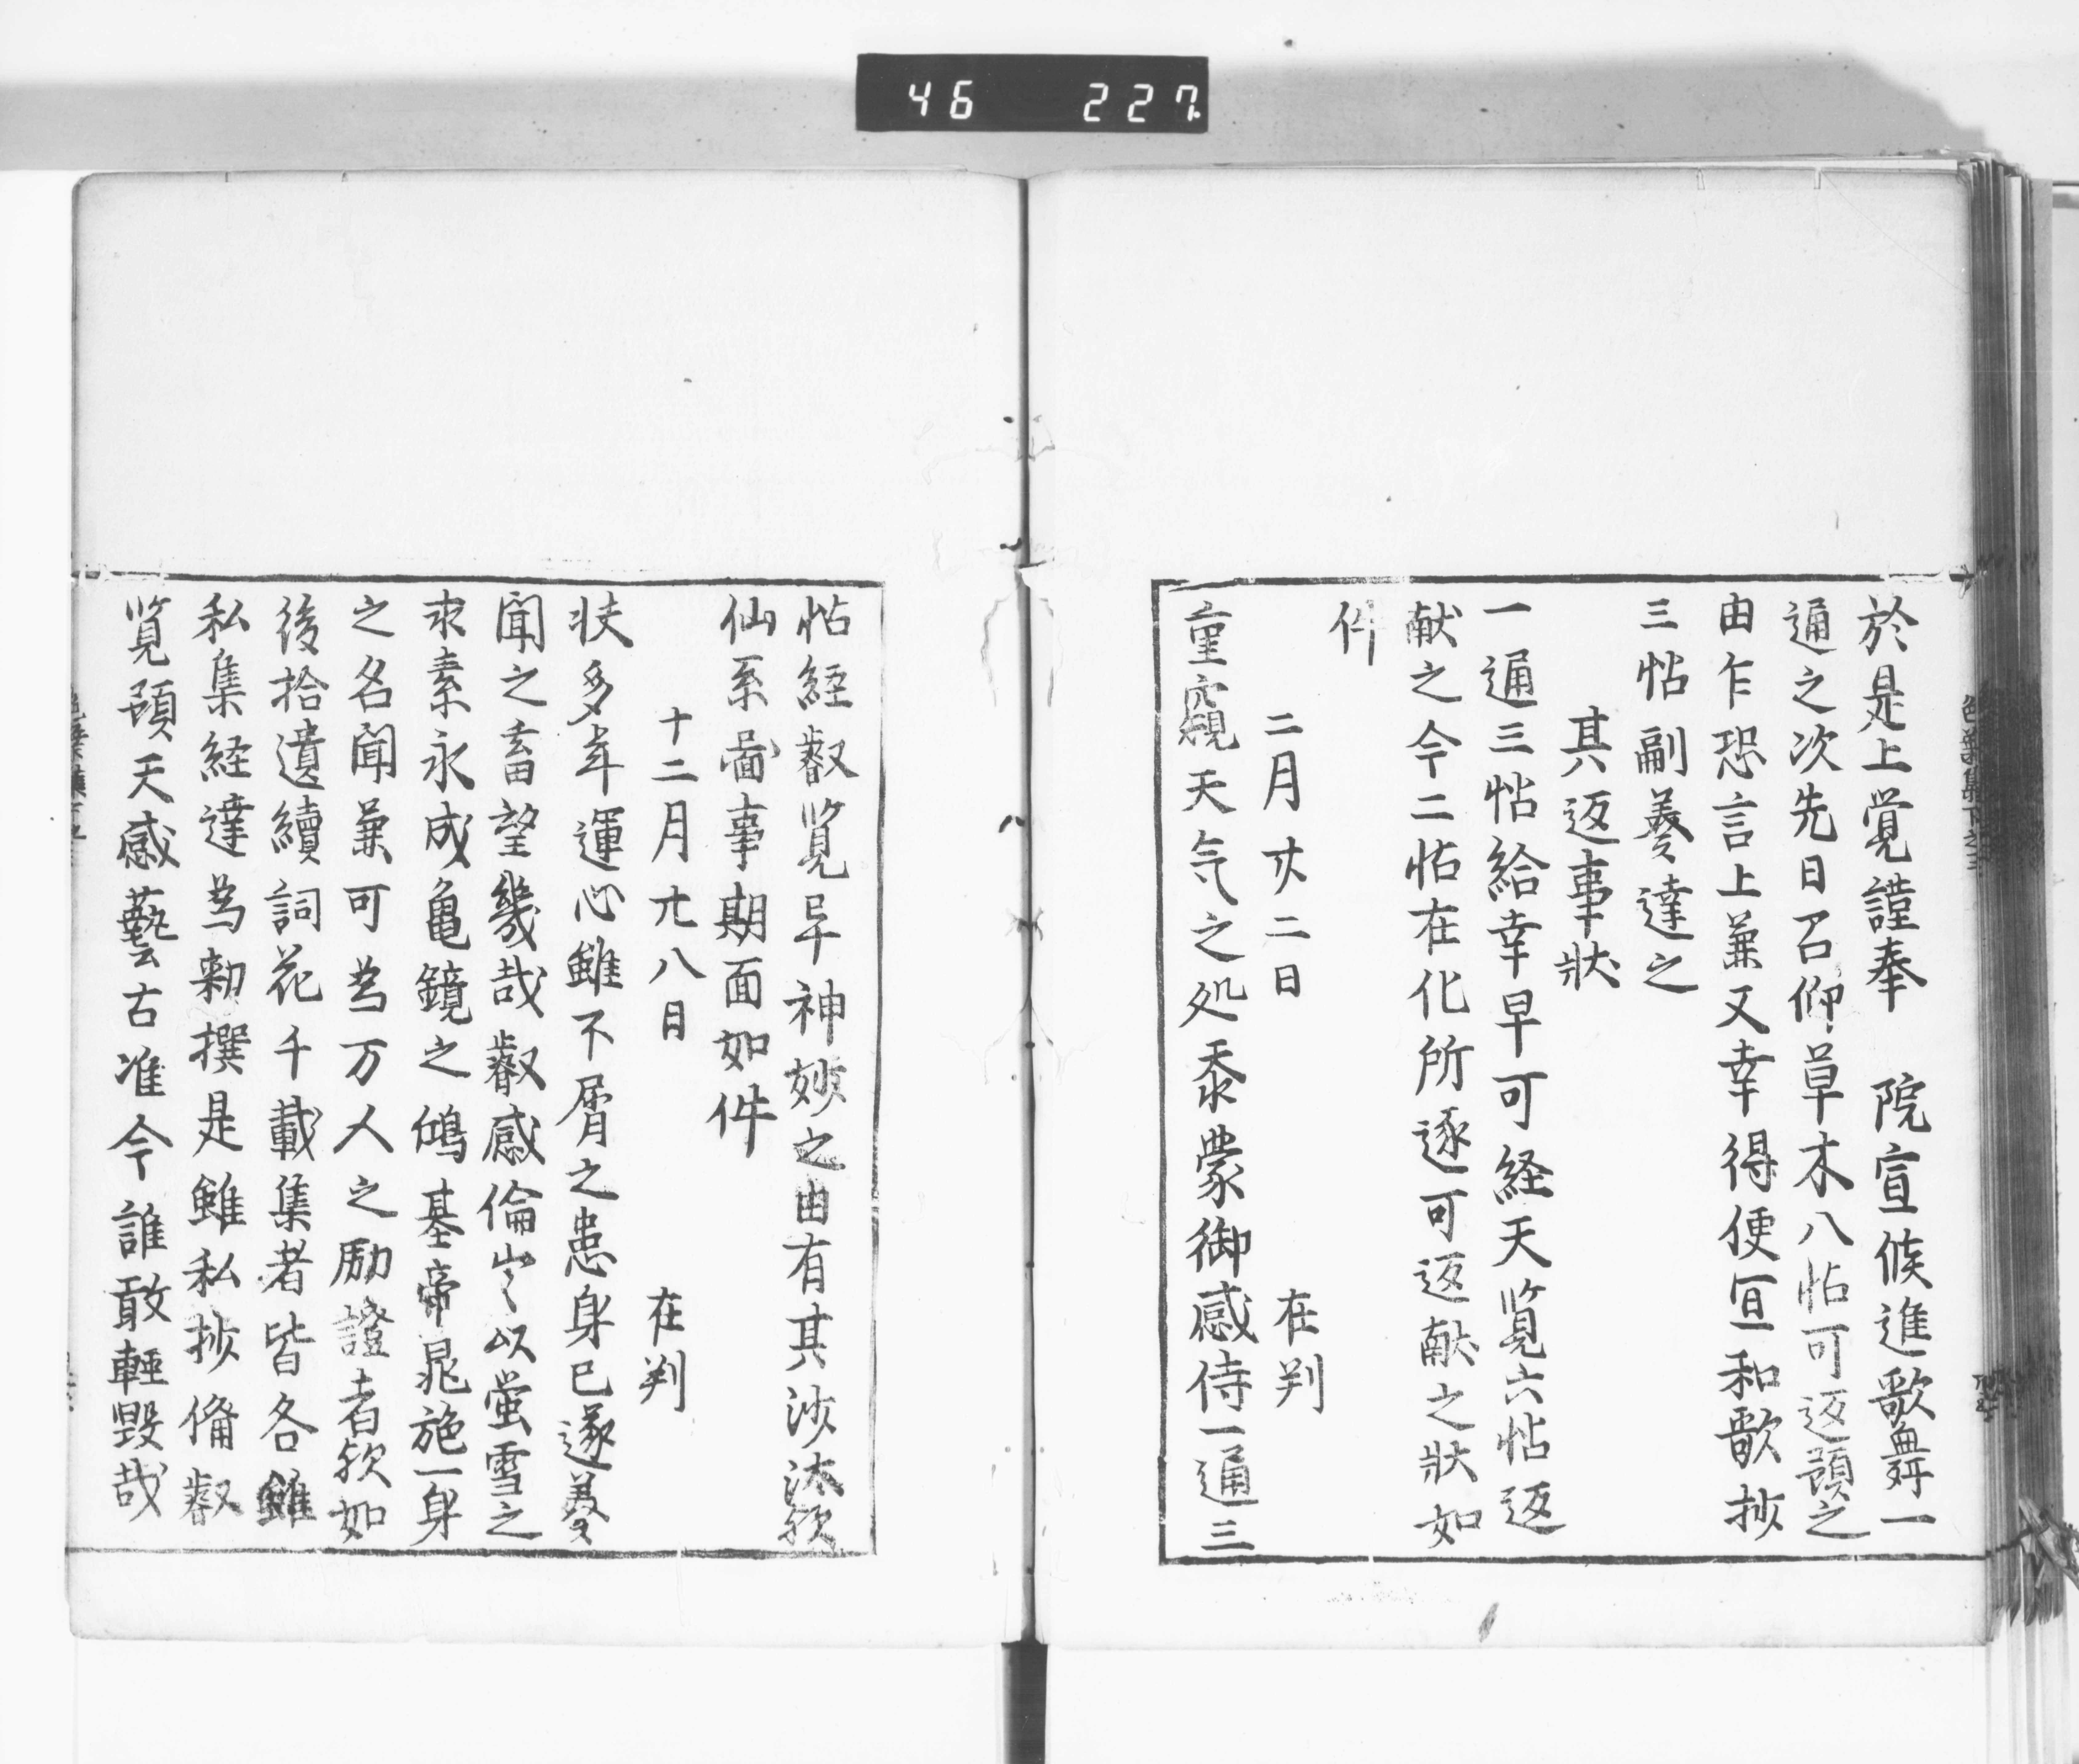 46 227
於是上覚謹奉　院宣候進歌舞一
通之次先日召仰草木八帖可返預之
由乍恐言上兼又幸得便宜和歌抄
三帖副養達之
其返事状
一通三帖給幸早可経天覧六帖返
献之今二帖在化所逐可返献之状如
件
二月廿二日　在判
重窺天気之処忝蒙御感侍一通三
帖経叡覧早神妙之由有其沙汰歟
仙系啚事期面如件
十二月廿八日　在判
状多年運心雖不屑之患身已遂養
聞之素望幾哉叡感倫言以蛍雪之
求素永成亀鏡之鴻基帝晁施一身
之名聞兼可為万人之励證者歟如
後拾遺續詞花千載集者皆各雖
私集経達為勅撰是雖私抄備叡
覧預天感藝古准今誰敢軽毀哉